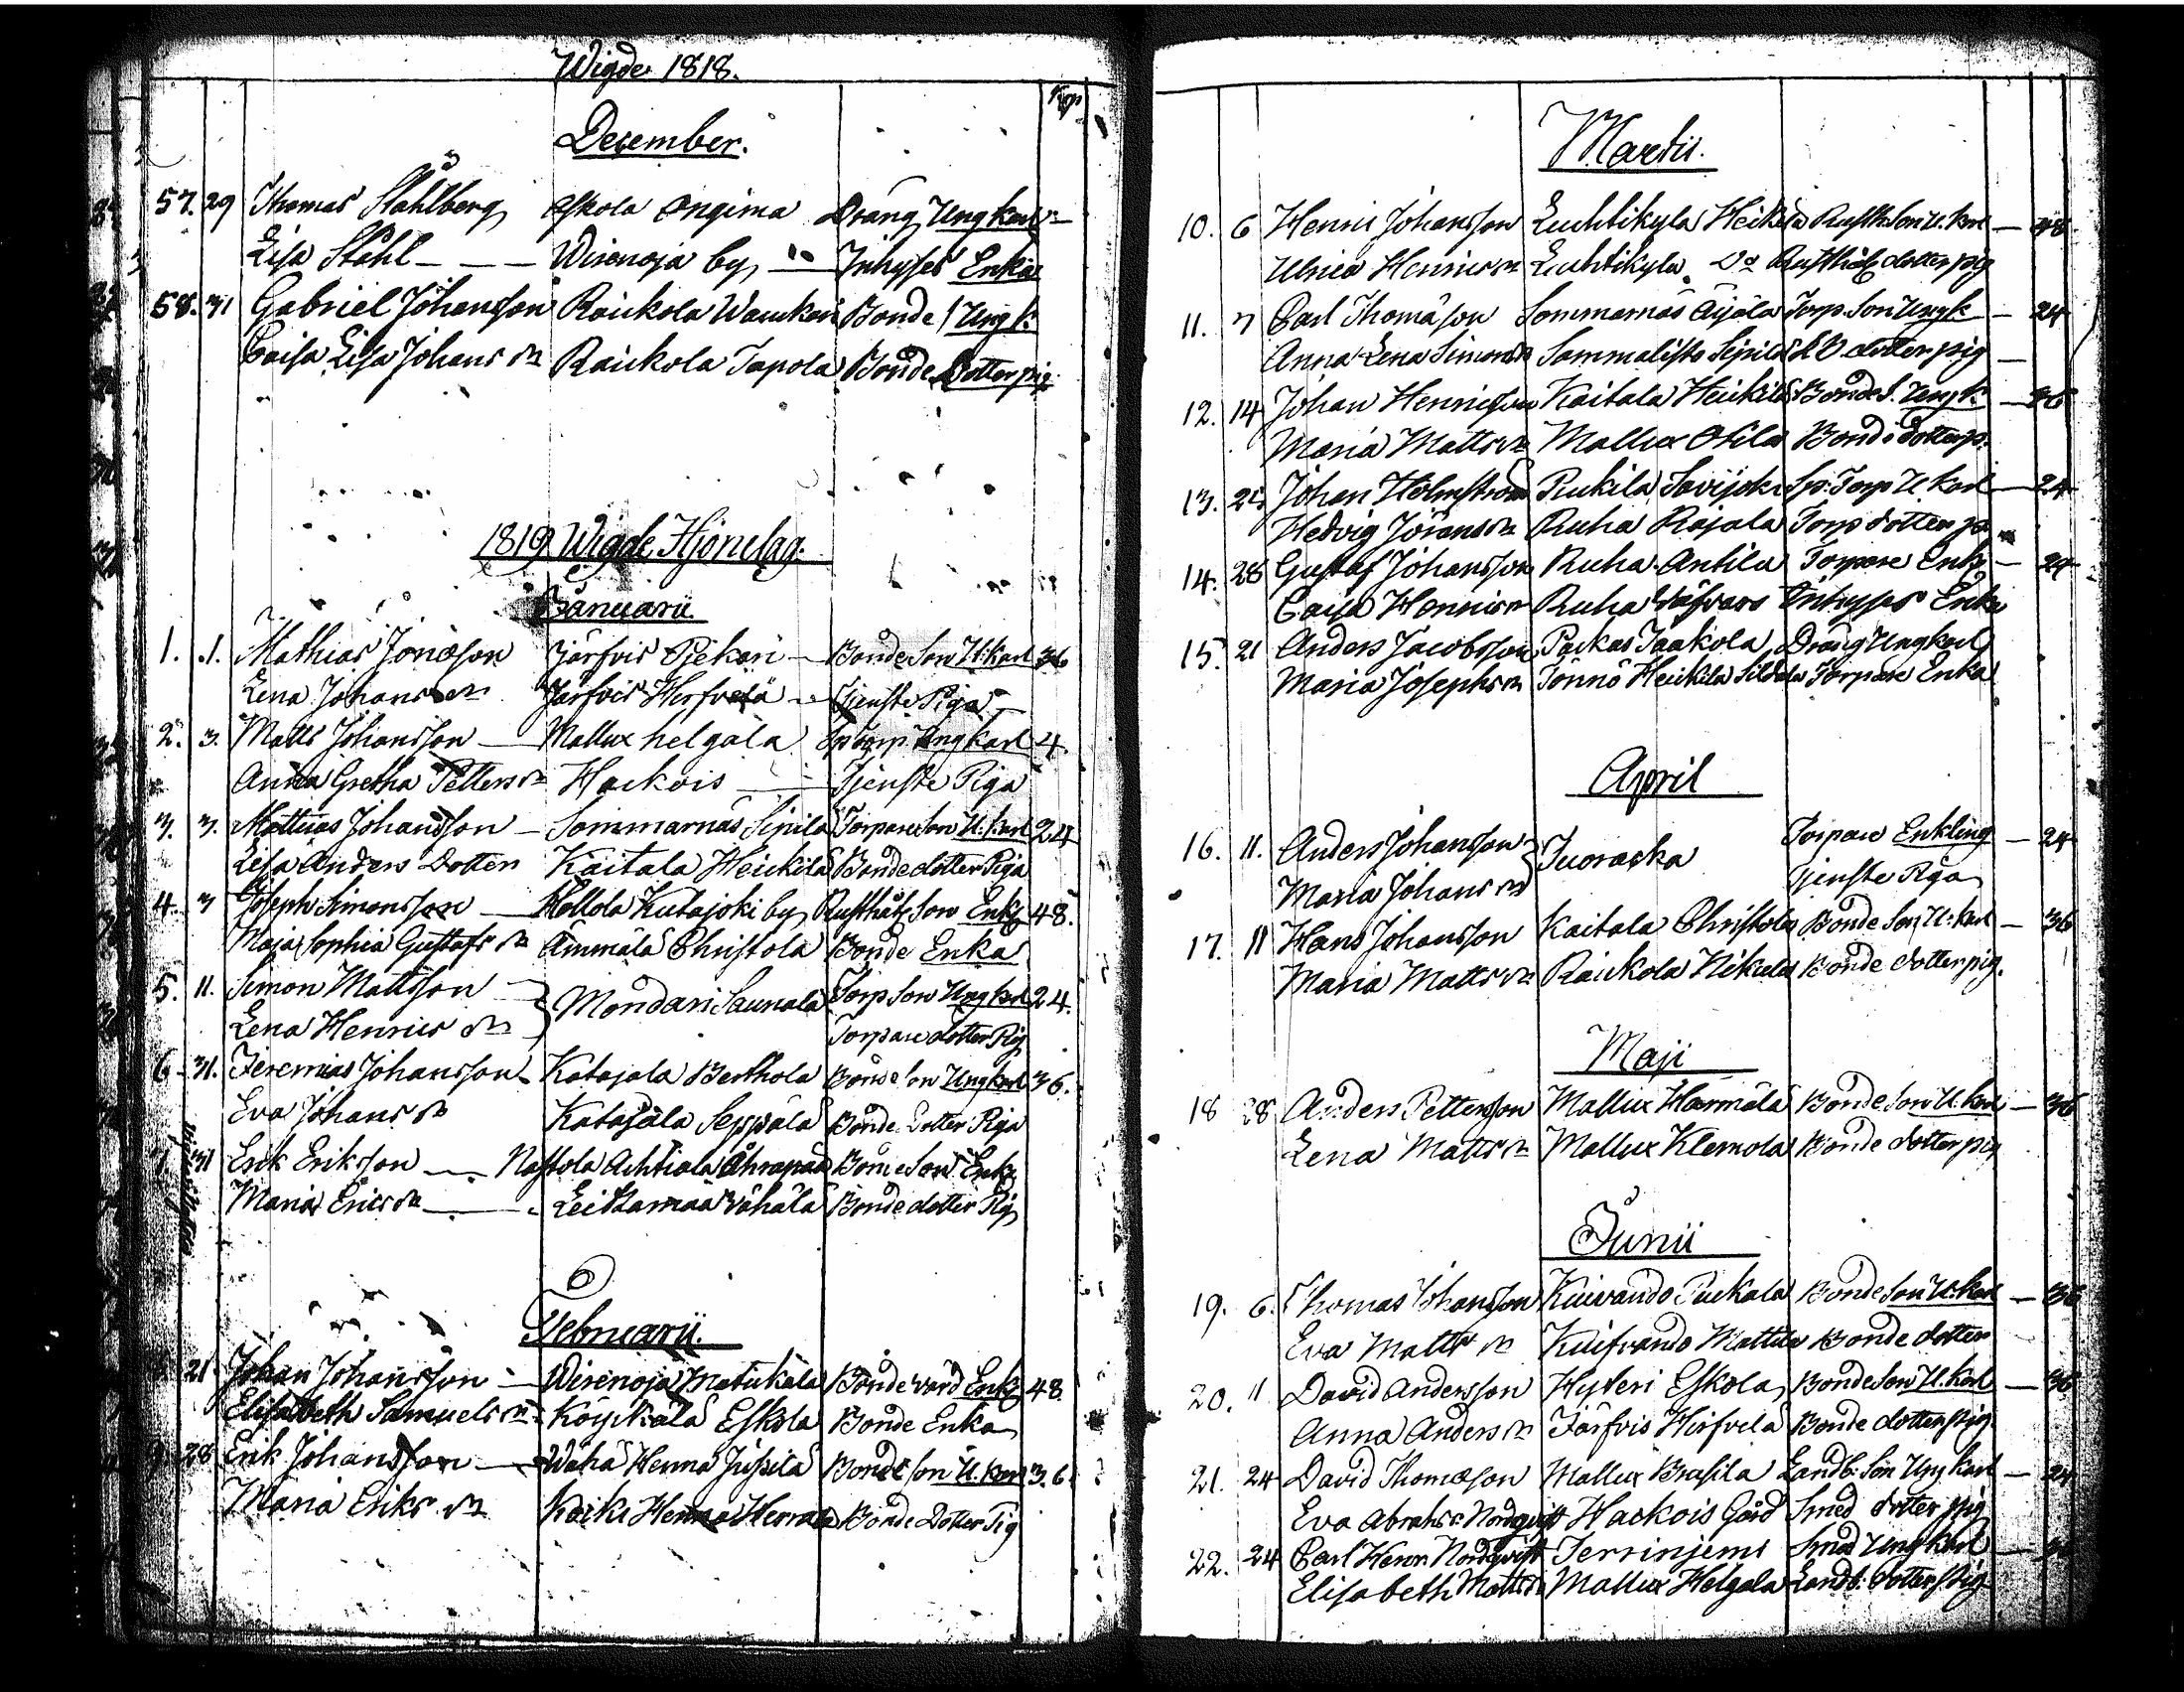 Wigde 1818.
Kop
December.
57. 29 Thomas Ståhlberg Askola Ongima Dräng Ung karl
Lisa Ståhl Wirenoja by Inhyses Enka
58. 31 Gabriel Johansson Räikola Bonde Ung k.
Caisa Lisa Johans dr Räikola Tapola Bonde Dotter pig
1819 Wigde Hjonelag.
Januarii
1. 1. Mathias Jonasson Järfvis Pekari Bonde Son U. Karl 36
Lena Johans dr Järfvis Herfvelä Tjenste Piga
2. 3. Matts Johansson Mallux helgala Ung Karl 24.
Anna Gretha Petters dr Hackois Tjenste Piga
3. 3. Mattias Johansson Sommarnäs Sipilä Torpare Son U. Karl 24
Lisa Anders Dotter Kaitala Heickilä Bonde dotter Piga
4. 3 Joseph Simonsson Hollola Kutajoki by Rusthål. Son Enkl 48.
Maja Sophia Gustafs dr Ämmälä Christola Bonde Enka
5. 11. Simon Mattsson Mondari Saunala Torp Son Ung karl 24.
Lena Henrics dr Torpare dotter Pig
6 31. Jeremias Johansson Katajala Berthola Bonde Son Ung karl 36.
Eva Johans dr Katajala Seppälä Bonde Dotter Piga
7. 31 Erik Eriksson Nastola Achtiala Bonde Son Enkl
Maria Erics dr Leitzamaa Wähälä Bonde dotter Pig
Februarii.
21. Johan Johansson Wirenoja Matukala Bonde värd Enkl 48
Elisabeth Samuels dr Köyskälä Eskola Bonde Enka
9 28 Erik Johansson Wähä Henna Jussila Bonde son U. karl 36.
Maria Eriks dr Koiki Henna Herrala Bonde Dotter Pig
Martii.
10. 6 Henric Johansson Luchtikylä Heikilä Rusth. Son U. karl 48
Ulrica Henrics dr Luchtikylä Do Rusthål dotter pig
11. 7 Carl Thomasson Sommarnäs Äijälä Torp. Son Ung k 24
Anna Lena Simons dr Sammalisto Sipilä dotter pig
12. 14 Johan Henricsson Kaitala Heickilä Bonde S. Ung k. 36
Maria Matts dr Mallux Ofila Bonde dotter p.
13. 25 Johan Holmström Pukila Savijoki Sp. Torp U. karl 24
Hedvig Jörans dr Ruha Rajala Torp dotter p.
14. 28 Gustaf Johansson Ruha Antila Torpare Enkl 24
Caisa Henrics dr Ruha Inhyses Enka
15. 21 Anders Jacobsson Packas Jaakola Dräng Ung karl
Maria Josephs dr Tönnö Heickilä Torpare Enka
April
16. 11. Anders Johansson Juoraska Torpare Enkling 24
Maria Johans dr Tjenste Piga
17. 11 Hans Johansson Kaitala Christola Bonde Son U. karl 36
Maria Matts dr Räikola Nikula Bonde dotter pig.
Maji
18 28 Anders Pettersson Mallux Harmälä Bonde Son U. karl 36
Lena Matts dr Mallux Klemola Bonde dotter pig
Junii
19. 6. Thomas Johansson Kuivando Puckala Bonde Son U. karl 36
Eva Matts dr Kuifvando Mattila Bonde dotter
20. 11 David Andersson Hyteri Eskola Bonde Son U. karl 36
Anna Anders dr Järfvis Hirfvelä Bonde dotter pig.
21. 24 David Thomasson Mallux Brasila Landb. Son Ung karl 24
Eva Abrahs dr Nordqvist Hackois Gård Smed dotter pig
22. 24 Carl Henr. Nordqvist Terrinjemi Smed Ung karl
Elisabeth Matts dr Mallux Helgala Landb. dotter pig